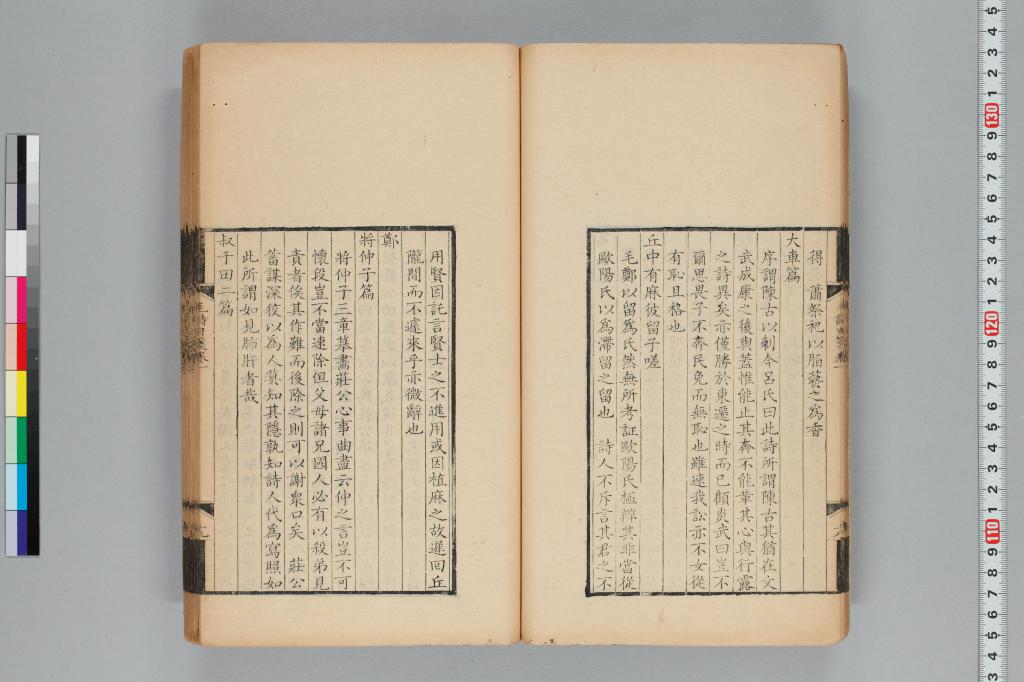 得　蕭祭祀以脂爇之為香
大車篇
序謂陳古以刺今呂氏曰此詩所謂陳古其猶在文
武成康之後與蓋惟能止其奔不能革其心與行露
之詩異矣亦僅勝於東遷之時而已顧炎武曰豈不
爾思畏子不奔民免而無恥也雖速我訟亦不女從
有恥且格也
丘中有麻彼留子嗟
毛鄭以留為氏然無所考証歐陽氏極辨其非當從
歐陽氏以為滯留之留也　詩人不斥言其君之不
用賢因託言賢士之不進用或因植麻之故遲回丘
隴間而不遽來乎亦微辭也
鄭
將仲子篇
將仲子三章摹畫莊公心事曲盡云仲之言豈不可
懷段豈不當速除但父母諸兄國人必有以殺弟見
責者俟其作難而後除之則可以謝衆口矣　莊公
蓄謀深狡以為人莫知其隱孰知詩人代為寫照如
此所謂如見肺肝者哉
叔于田二篇
九